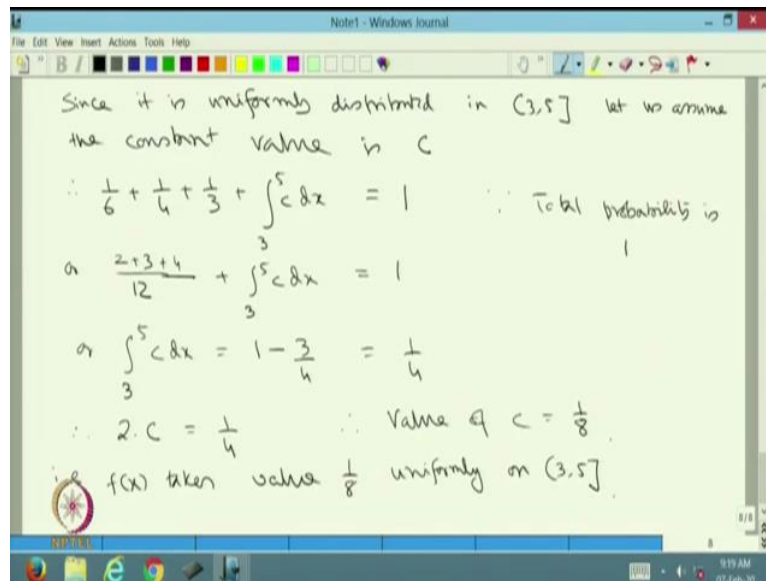 Note1 - Windows Journal
File Edit View Insert Actions Tools Help
Since it is uniformly distributed in (3,5] let us assume
the constant value is c
∴ 1/6 + 1/4 + 1/3 + ∫₃⁵ c dx = 1 ∵ Total probability is 1
or (2+3+4)/12 + ∫₃⁵ c dx = 1
or ∫₃⁵ c dx = 1 - 3/4 = 1/4
∴ 2.c = 1/4 ∴ Value of c = 1/8.
i.e f(x) takes value 1/8 uniformly on (3,5].
NPTEL
8/8
8
9:19 AM
07-Feb-20